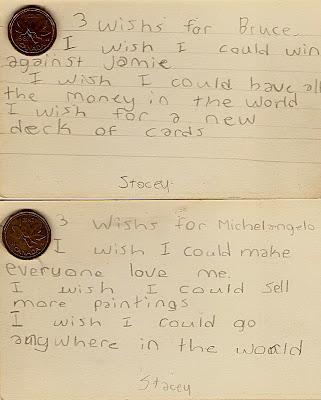 3 wishs for Bruce.
I wish I could win
against Jamie
I wish I could have all
the money in the world
I wish for a new
deck of cards
Stacey
3 wishs for Michelangelo
I wish I could make
everyone love me.
I wish I could sell
more paintings
I wish I could go
anywhere in the world
Stacey